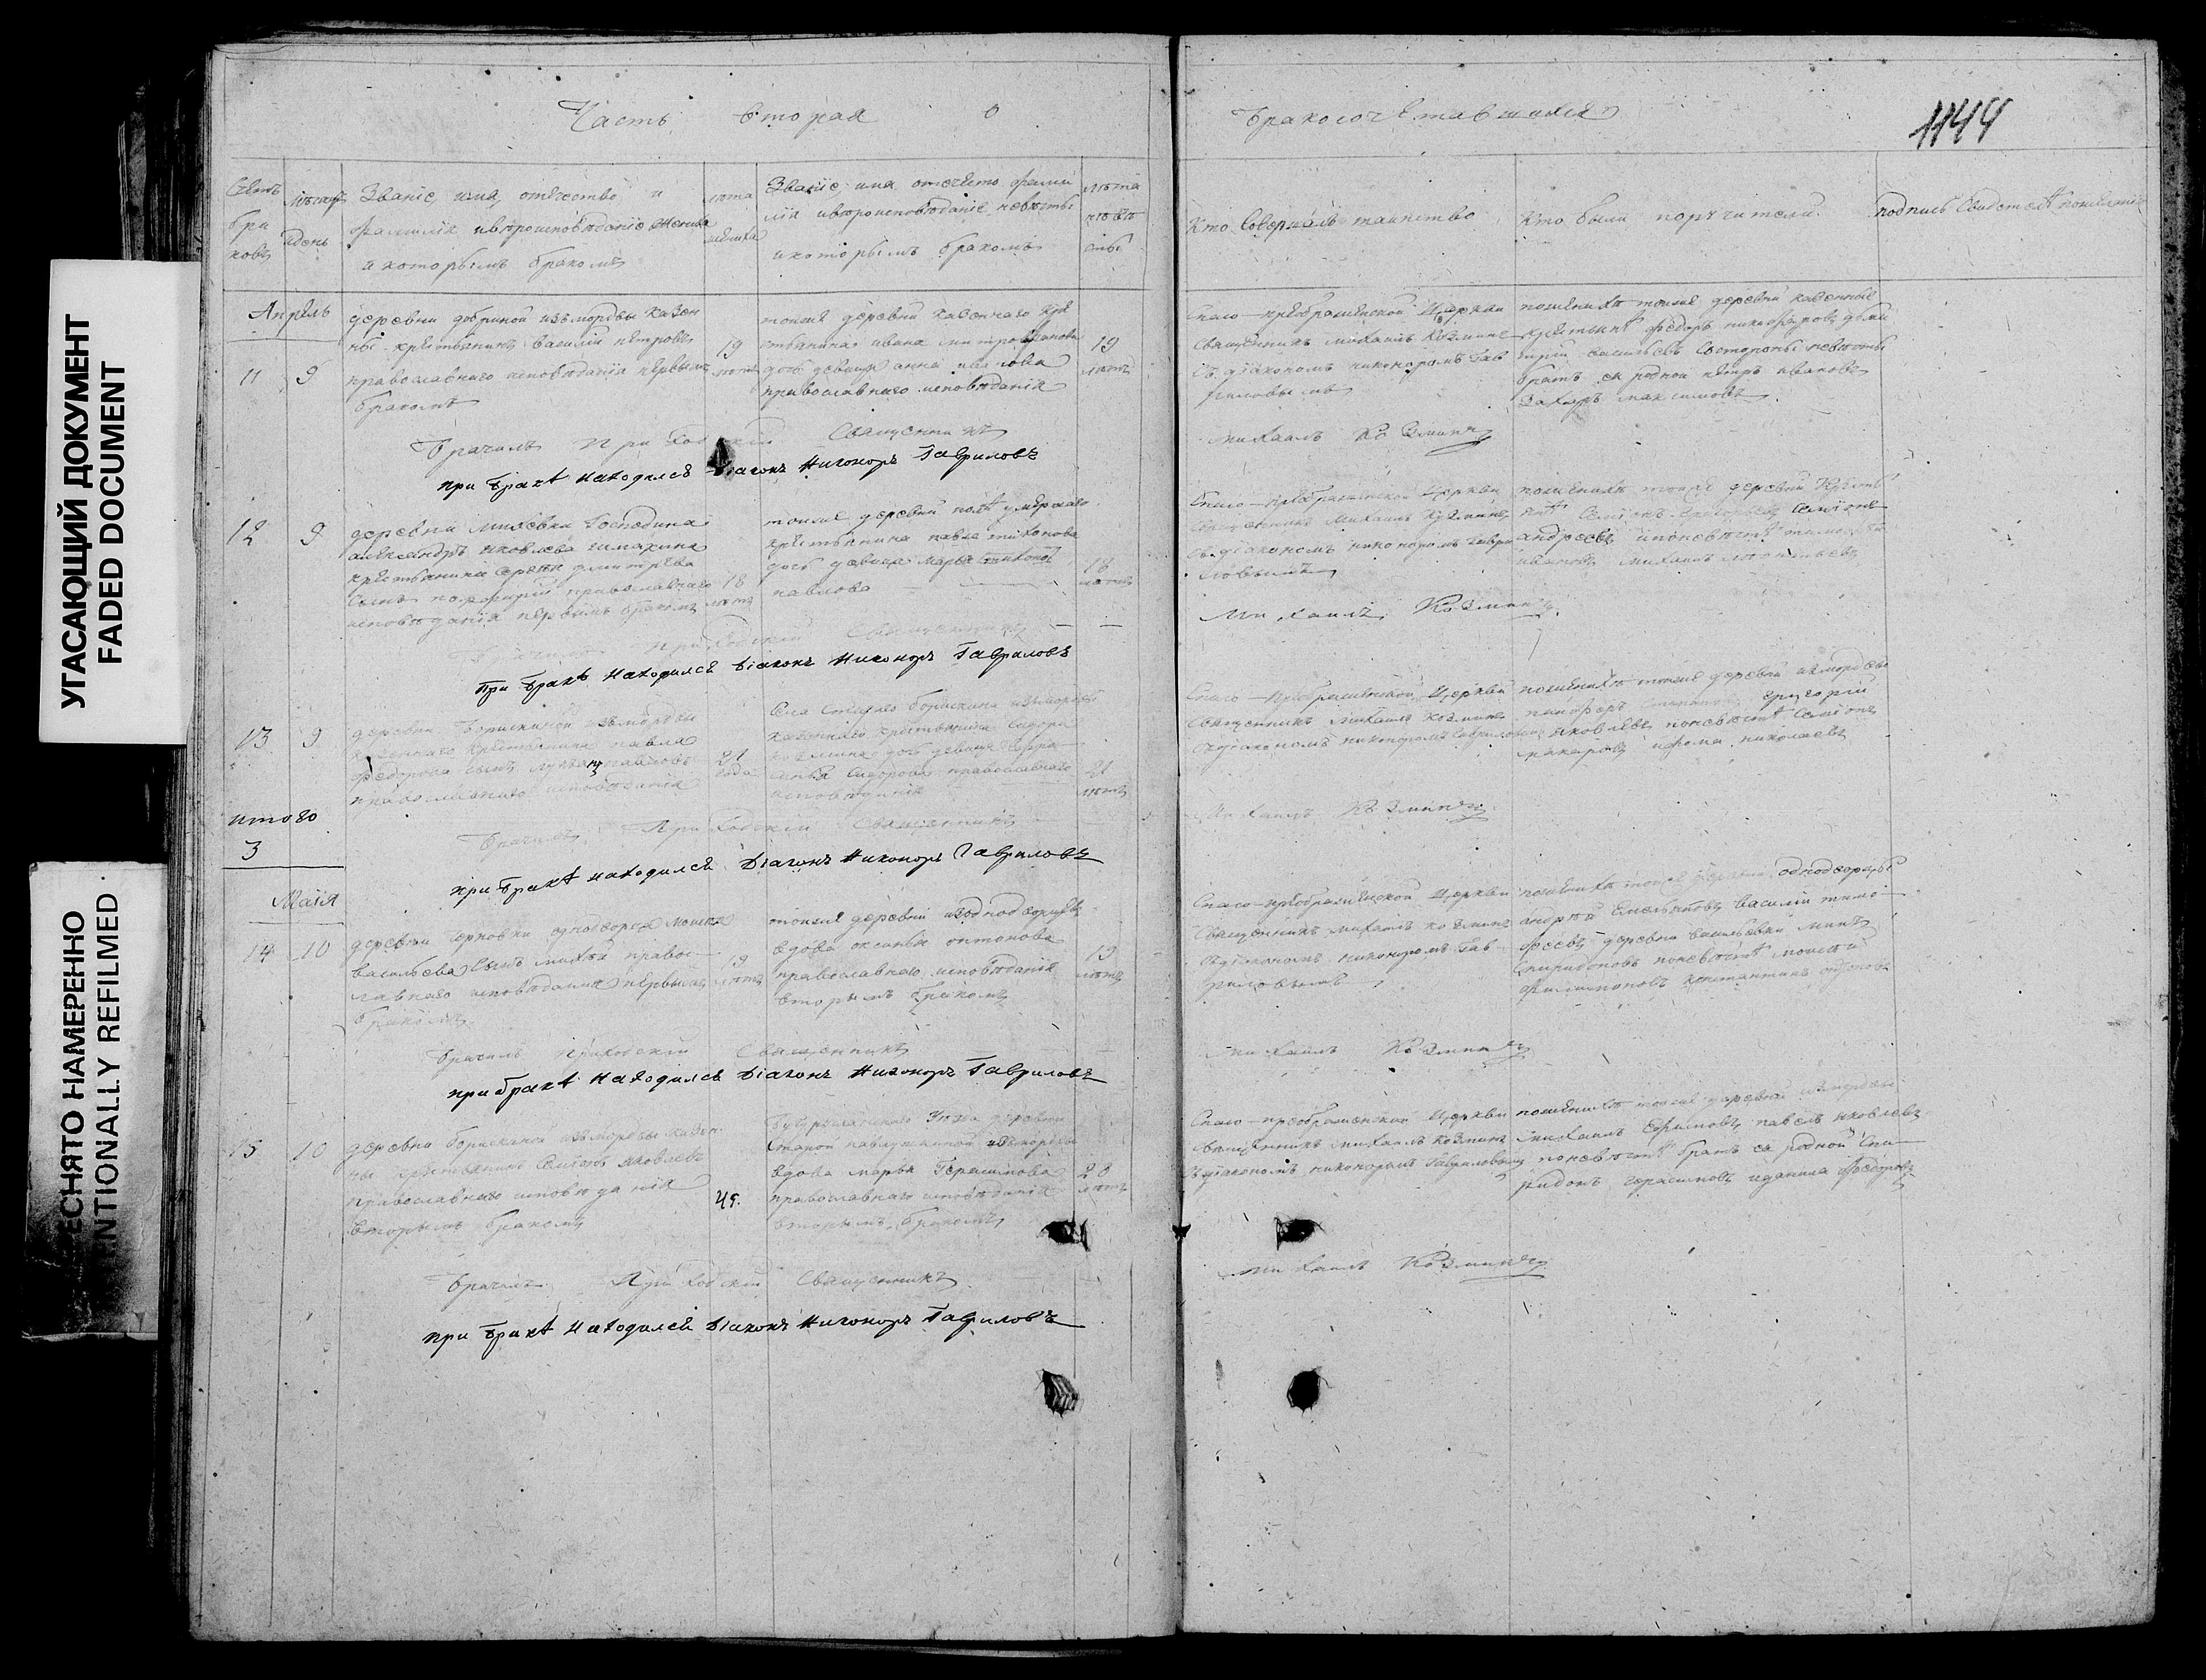 УГАСАЮЩИЙ ДОКУМЕНТ
FADED DOCUMENT
ЕСНЯТО НАМЕРЕННО
NTIONALLY REFILMED
Часть вторая о
бракосочетавшихся
1144
Счетъ браковъ
Месяцъ и день
Званіе, имя, отечество и
фамилія и вероисповѣданіе жениха
и которымъ бракомъ
лета жениха
Званіе, имя, отечество фами
лія и вероисповѣданіе невѣсты
и которымъ бракомъ
лѣта невѣсты
Кто Совершалъ таинство
Кто были поручители
подпись Свидетелѣй по желанію
Апрель
11 9
деревни добриной изъ мордвы казен
ный крестьянинъ василій петровъ
православнаго исповѣданія первымъ
бракомъ
19 летъ
тойже деревни казеннаго кре
стьянина ивана митрофанова
дочь девица анна иванова
православнаго исповѣданія
19 летъ
Спасо-преображенской Церкви
Священникъ михаилъ Козминъ
съ діакономъ никоноромъ Гав
риловымъ
по женихѣ тойже деревни казенные
крестьянѣ федоръ никифоровъ дми
трій васильевъ Состороны невѣсты
братъ ея родной петръ ивановъ
Захаръ максимовъ
Брачилъ Приходскій Священникъ
михаилъ Козминъ
при бракѣ находился діаконъ Никоноръ Гавриловъ
12 9
деревни михеевки Господина
александръ яковлева
крестьянина Сергея дмитрева
Сынъ порфирій православнаго
исповѣданія первымъ бракомъ
18 летъ
тойже деревни
крестьянина павла тихонова
дочь девица марья
павлова
18 летъ
Спасо-преображенской Церкви
Священникъ Михаилъ Козминъ
съ діакономъ никоноромъ Гаври
ловымъ
по женихѣ тойже деревни
Семіонъ Семіонъ
андреевъ
ивановъ михаилъ
Приходскій Священникъ
михаилъ Козминъ
при бракѣ находился діаконъ Никоноръ Гавриловъ
13 9
деревни Борискиной изъ мордвы
казеннаго крестьянина павла
федорова сынъ
православнаго исповѣданія
21 года
Села Стараго борискина изъ мордвы
казеннаго крестьянина Сидора
козмина дочь девица
Сидорова православнаго
исповѣданія
21 летъ
Спасо-преображенской Церкви
Священникъ Михаилъ Козминъ
съ діакономъ никоноромъ Гавриловымъ
по женихѣ тойже деревни изъ мордвы
григорій
яковлевъ по невѣстѣ Семіонъ
макаровъ и фома николаевъ
итого
3
Брачилъ Приходскій Священникъ
михаилъ Козминъ
при бракѣ находился діаконъ Никоноръ Гавриловъ
Маія
14 10
деревни Чорновки однодворца
васильева Сынъ михѣй правос
лавнаго исповѣданія первымъ
бракомъ
19 летъ
тойже деревни изъ однодворцевъ
вдова оксинья онтонова
православнаго исповѣданія
вторымъ бракомъ
19 летъ
Спасо-преображенской Церкви
Священникъ михаилъ козминъ
съ діакономъ никоноромъ Гав
риловымъ
по женихѣ тойже деревни однодворцы
андрей Емельяновъ василій тимо
феевъ деревни васильевки
Спиридоновъ по невѣстѣ
филимоновъ константинъ онтоновъ
Брачилъ приходскій Священникъ
михаилъ Козминъ
при бракѣ находился діаконъ Никоноръ Гавриловъ
15 10
деревни борискиной изъ мордвы казен
ный крестьянинъ Семіонъ яковлевъ
православнаго исповѣданія
вторымъ бракомъ
45.
Бугурусланскаго Уезда деревни
Старой изъ мордвы
вдова марья Герасимова
православнаго исповѣданія
вторымъ бракомъ
28 летъ
Спасо-преображенской Церкви
Священникъ михаилъ козминъ
съ діакономъ никоноромъ Гавриловымъ
по женихѣ тойже деревни изъ мордвы
михаилъ Ефимовъ павелъ яковлевъ
по невѣстѣ братъ ея родной Спи
ридонъ герасимовъ и данила федоровъ
Брачилъ Приходскій Священникъ
михаилъ Козминъ
при бракѣ находился діаконъ Никоноръ Гавриловъ